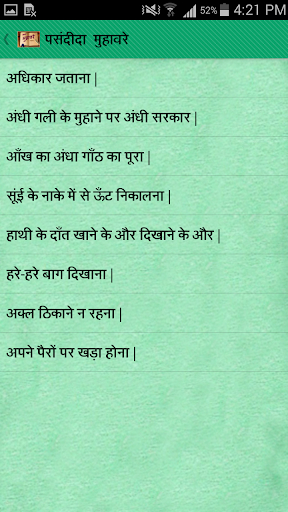 52% 4:21 PM
पसंदीदा मुहावरे
अधिकार जताना |
अंधी गली के मुहाने पर अंधी सरकार |
आँख का अंधा गाँठ का पूरा |
सूंई के नाके में से ऊँट निकालना |
हाथी के दाँत खाने के और दिखाने के और |
हरे-हरे बाग दिखाना |
अक्ल ठिकाने न रहना |
अपने पैरों पर खड़ा होना |